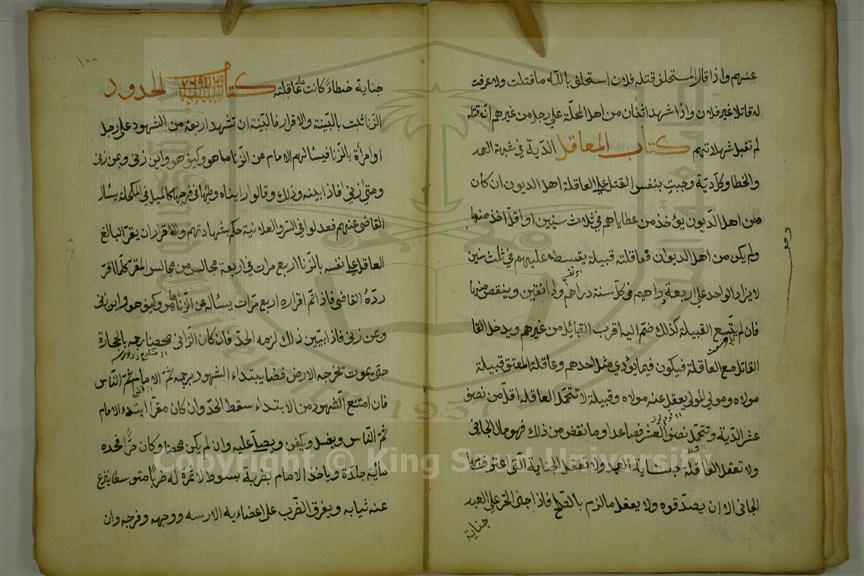 عنهم واذا قال المستحلف قتله فلان استحلف بالله ما قتلت ولا عرفت
له قاتلا غير فلان واذا شهد اثنان من اهل المحلة على رجل من غيرهم انه قتله
لم تقبل شهادتهم كتاب المعاقل الدية في شبه العمد
والخطا وكل دية وجبت بنفس القتل على العاقلة اهل الديون ان كان
من اهل الديون يؤخذ من عطاياهم في ثلاث سنين او اقل اخذ منها
ولم يكن من اهل الديوان فعاقلته قبيلة بقسطه عليهم في ثلث سنين
لا يزاد الواحد على اربعة دراهم في كل سنة درهم ودانقين وينقص منها
فان لم يتسع القبيلة لذلك ضم اليه اقرب القبايل من غيرهم ويدخل القا
القاتل مع العاقلة فيكون فيما يؤدي مثل احدهم وعاقلة المعتق قبيلة
مولاه ومولى الموالي يعقل عنه مولاه وقبيلة لا تتحمل العاقلة اقل من نصف
عشر الدية وتتحمل نصف العشر فصاعدا وما نقص من ذلك فهو مال الجاني
ولا تعقل العاقلة جناية العبد ولا تعقل الجناية التي اعترف بها
الجاني الا ان يصدقوه ولا يعقل ما لزم بالصلح فاذا جنى الحر على العبد
جناية
جناية خطاء كانت على عاقلته كتاب الحدود
الزنا تثبت بالبينة والاقرار فالبينة ان تشهد اربعة من الشهود على رجل
او امرأة بالزنا فيسالهم الامام عن الزنا ما هو وكيف هو واين زنى وبمن زنى
ومتى زنى فاذا بينه وذلك وقالوا رايناه وطيها في فرجها كالميل في المكحلة يسال
القاضي عنهم فعدلوا في السر والعلانية حكم بشهادتهم والاقرار ان يقر البالغ
العاقل على نفسه بالزنا اربع مرات في اربعة مجالس من مجالس المقر كلما اقر
رده القاضي فاذا تم اقراره اربع مرات يساله عن الزنا ما هو وكيف هو واين زنى
وعن زنى فاذا بين ذلك لزمه الحد فان كان الزاني محصنا رجمه بالحجارة
حتى يموت تخرجه الارض فضا يبتداء الشهود برجمه ثم الامام ثم الناس
فان امتنع الشهود من الابتداء سقط الحد وان كان مقرا ابتداء الامام
ثم الناس ويغسل ويكفن ويصلا عليه وان لم يكن محصنا وكان حرا فحده
مائة جلدة وياخذ الامام بضربة بسوط لا ثمرة له ضربا متوسطا ينزع
عنه ثيابه ويفرق الضرب على اعضايه الا رسه ووجهه وفرجه وان
Copyright © King Saud University
1957